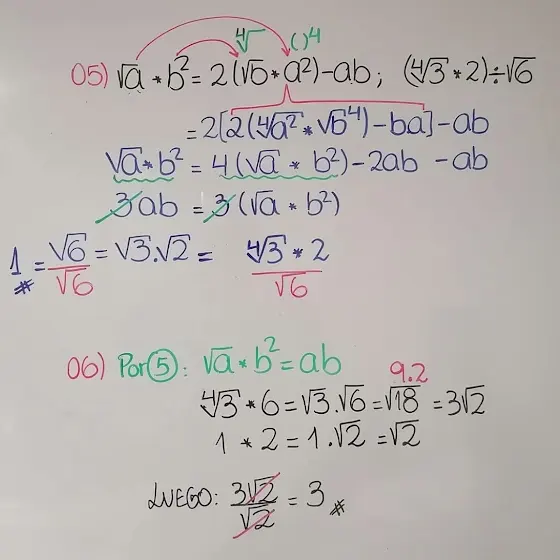 ∜ ( )⁴
05) √a * b² = 2(√b * a²) - ab ; (∜3 * 2) ÷ √6
= 2[2(∜a² * √b⁴) - ba] - ab
√a * b² = 4(√a * b²) - 2ab - ab
3ab = 3(√a * b²)
1 = √6/√6 = √3.√2 = ∜3 * 2/√6
#
06) Por ⑤: √a * b² = ab
9.2
∜3 * 6 = √3.√6 = √18 = 3√2
1 * 2 = 1.√2 = √2
LUEGO: 3√2/√2 = 3 #